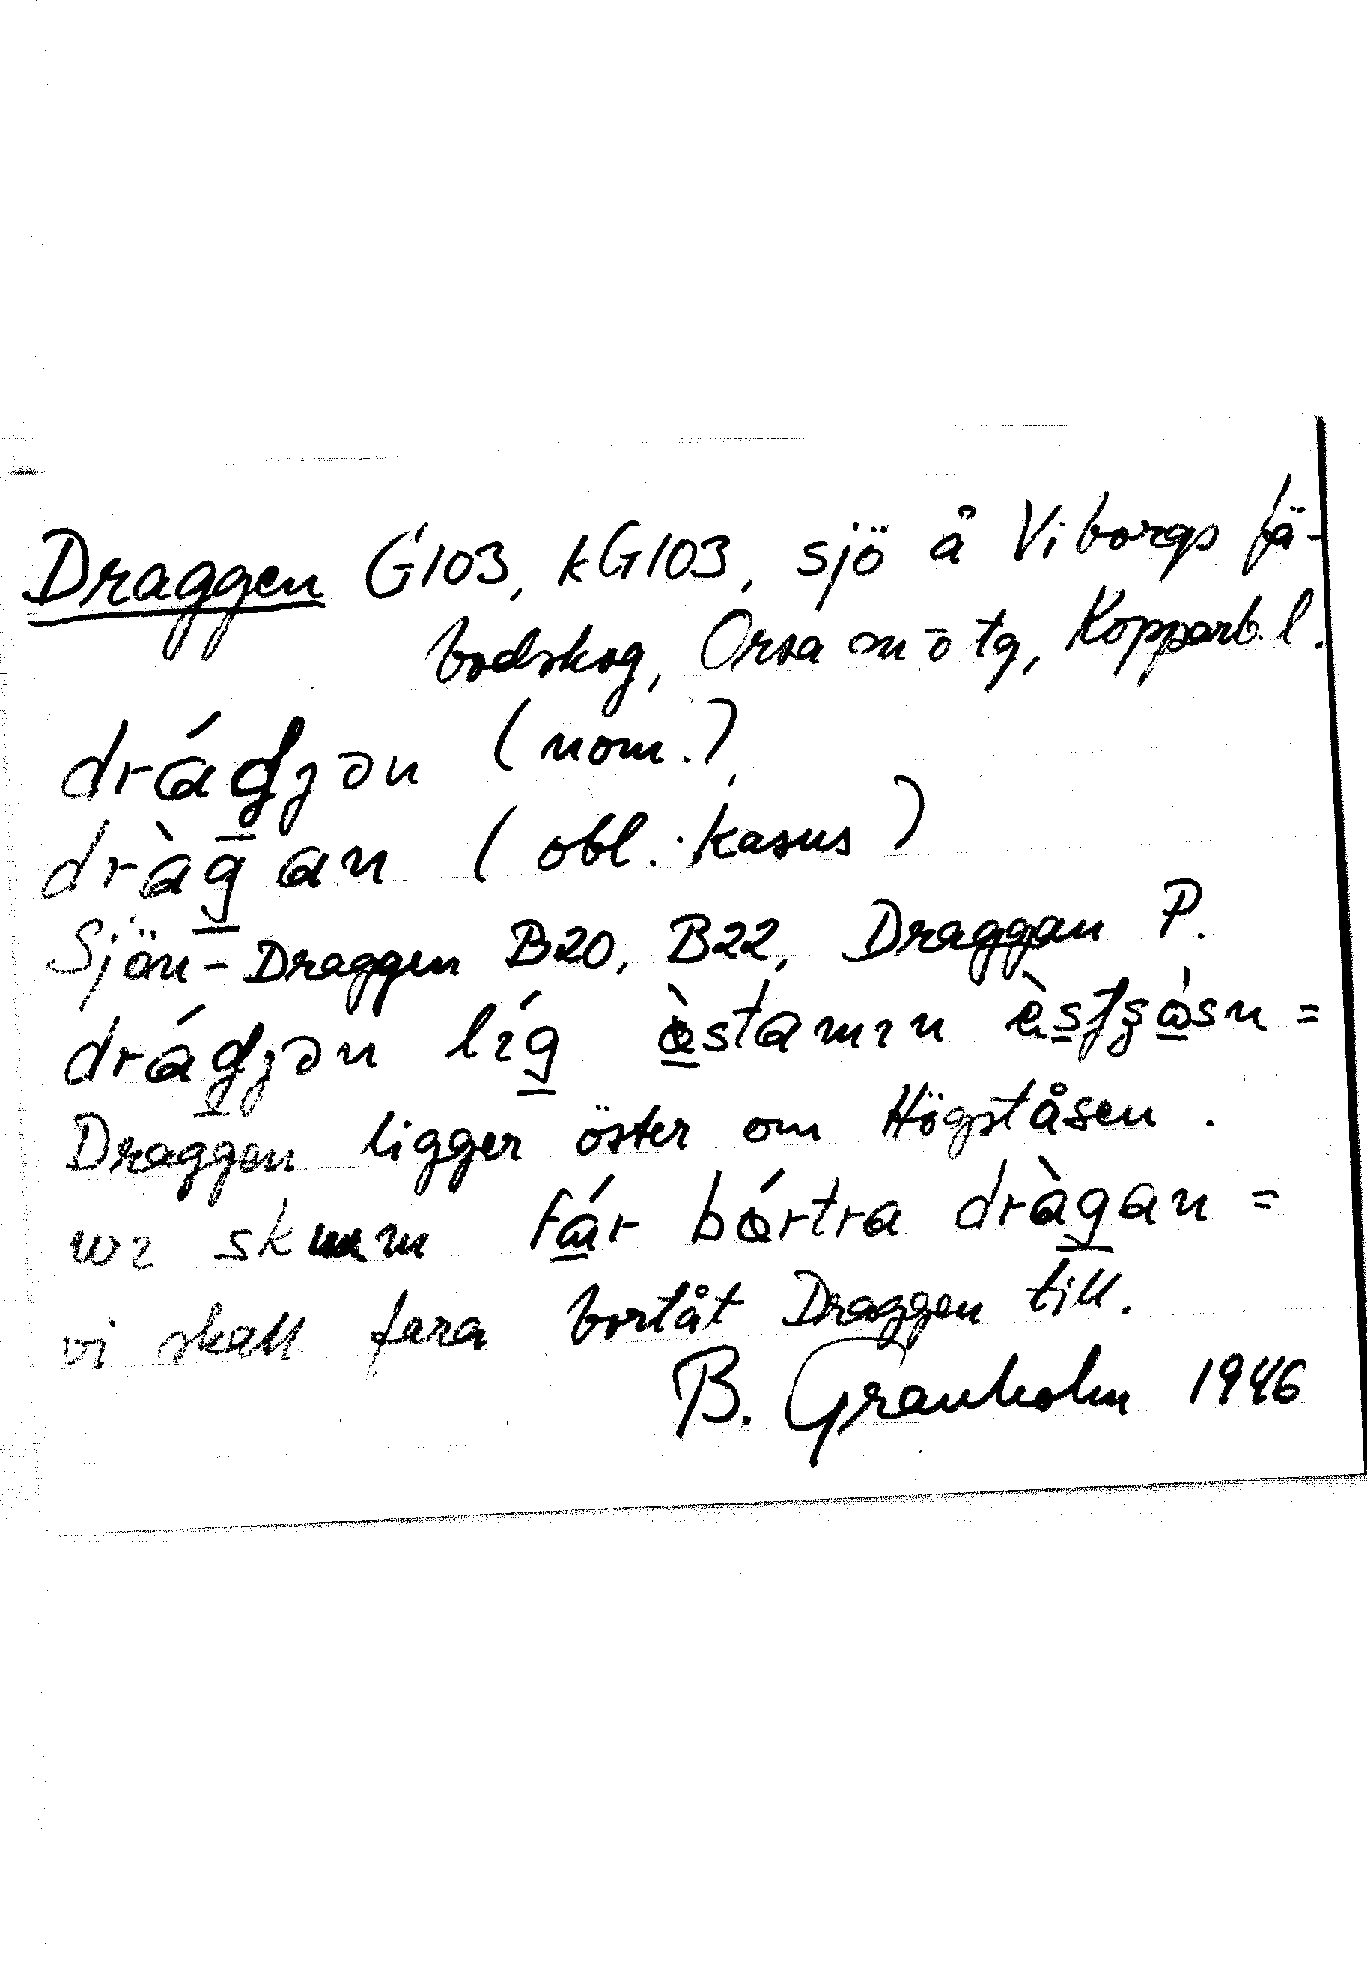 Draggen G103, kG103, sjö å Viborgs fä-
bodskog, Orsa sn o tg, Kopparb. l.
drág̲ʒən (nom.)
dràg̲an (obl. kasus)
Sjön-Draggen B20, B22, Draggan P.
drág̲ʒən líg̲ stamın =
Draggen ligger öster om Högståsen.
wı skum fár bórtra dràg̲an =
vi skall fara bortåt Draggen till.
B. Granholm 1946